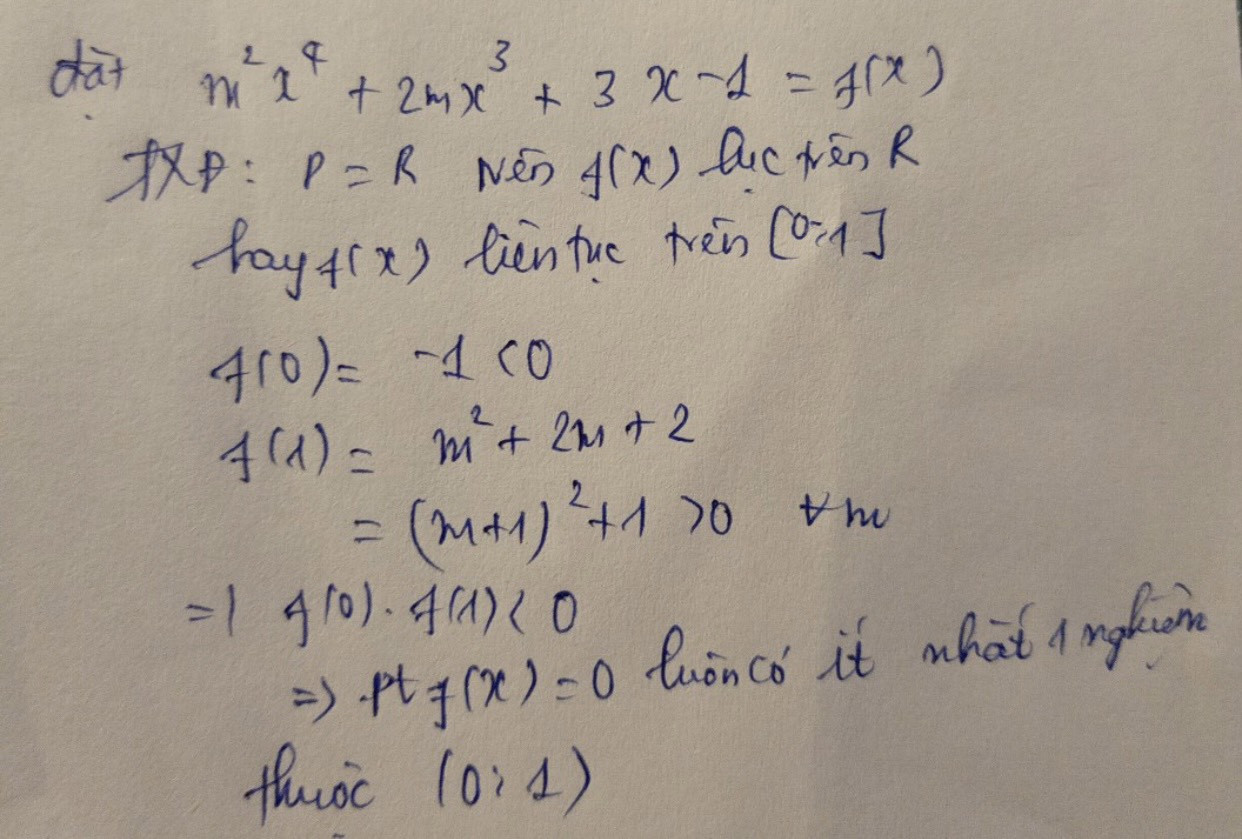 đặt m²x⁴ + 2mx³ + 3x - 1 = f(x)
TXĐ: D = R nên f(x) lục trên R
hay f(x) liên tục trên [0;1]
f(0) = -1 < 0
f(1) = m² + 2m + 2
= (m+1)² + 1 > 0 ∀m
=) f(0).f(1) < 0
=> pt f(x) = 0 luôn có ít nhất 1 nghiệm
thuộc (0;1)